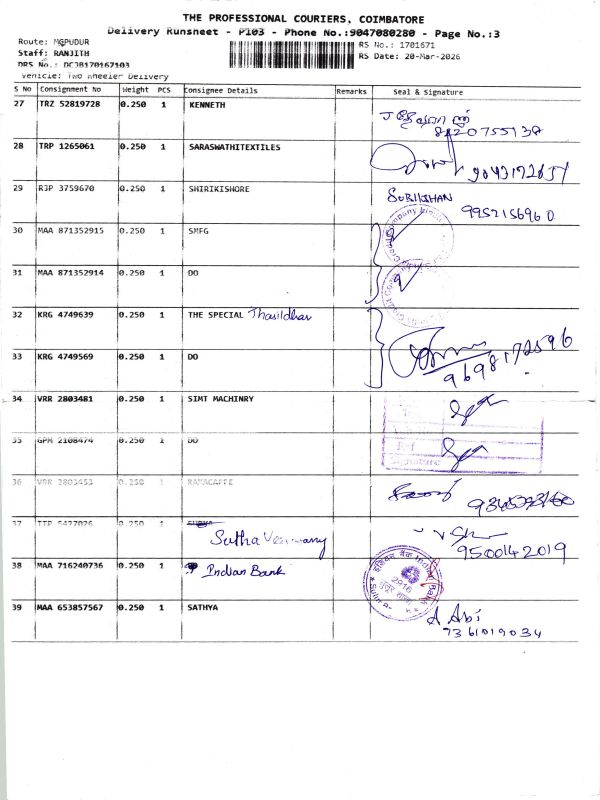 THE PROFESSIONAL COURIERS, COIMBATORE
Delivery Runsheet - P103 - Phone No.:9047080280 - Page No.:3
Route: MGPUDUR
Staff: RANJITH
DRS No.: DCJB170167103
RS No.: 1701671
RS Date: 20-Mar-2026
Vehicle: Two Wheeler Delivery
S No Consignment No Weight PCS Consignee Details Remarks Seal & Signature
27 TRZ 52819728 0.250 1 KENNETH
8220755138
28 TRP 1265061 0.250 1 SARASWATHITEXTILES
9043172651
29 RJP 3759670 0.250 1 SHIRIKISHORE SURIKSHAN
9952156960
30 MAA 871352915 0.250 1 SMFG
31 MAA 871352914 0.250 1 DO
32 KRG 4749639 0.250 1 THE SPECIAL Thasildhar
33 KRG 4749569 0.250 1 DO
9698172596
34 VRR 2803481 0.250 1 SIMT MACHINRY
35 GPM 2108474 0.250 1 DO
Signature
36 VRR 2803453 0.250 1 RAMACAFFE
37 TTP 5427026 0.250 1
Sutha Veerwamy
9500142019
38 MAA 716240736 0.250 1 Indian Bank
इंडियन बैंक Indian Bank
2816
39 MAA 653857567 0.250 1 SATHYA A Abi
7361019034